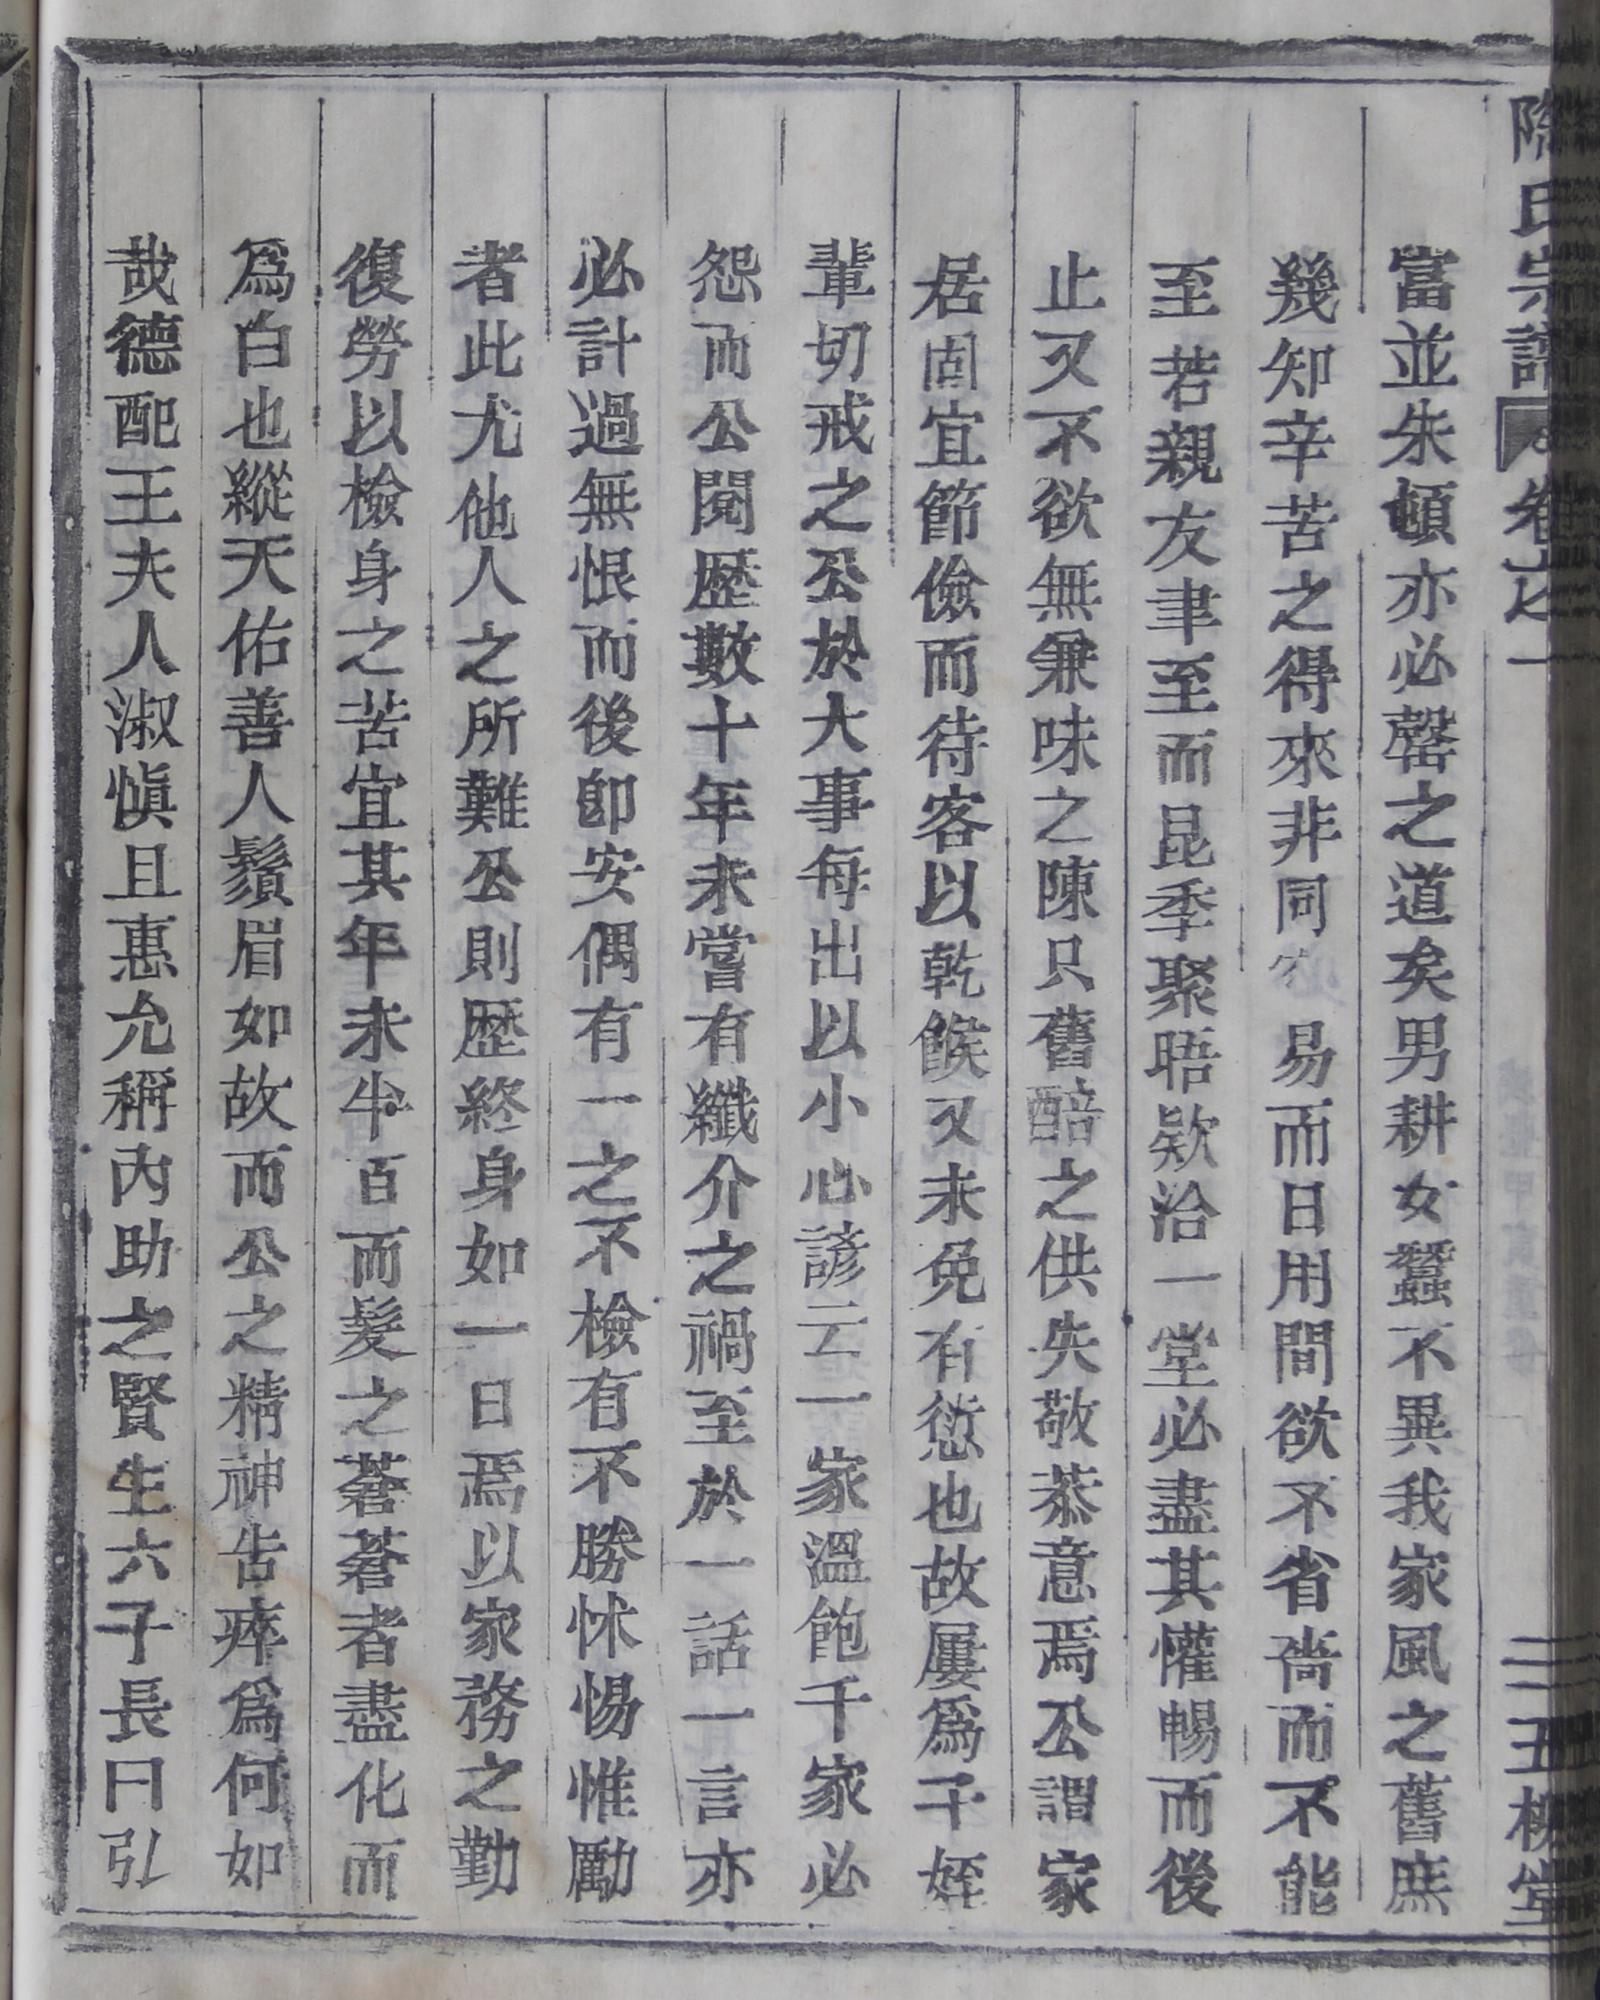 陶氏宗譜 卷之一 五柳堂
富並朱頓亦必罄之道矣男耕女蠶不異我家風之舊庶
幾知辛苦之得來非同 易而日用間欲不省嗇而不能
至若親友聿至而昆季聚晤欵洽一堂必盡其懽暢而後
止又不欲無兼味之陳只舊醅之供失敬恭意焉公謂家
居固宜節儉而待客以乾餱又未免有愆也故屢爲子姪
輩切戒之公於大事每出以小心諺云一家溫飽千家必
怨而公閱歷數十年未嘗有纖介之禍至於一話一言亦
必計過無恨而後卽安偶有一之不檢有不勝怵惕惟勵
者此尤他人之所難公則歷終身如一日焉以家務之勤
復勞以檢身之苦宜其年未半百而髮之蒼蒼者盡化而
爲白也縱天佑善人鬚眉如故而公之精神告瘁爲何如
哉德配王夫人淑愼且惠允稱內助之賢生六子長曰弘